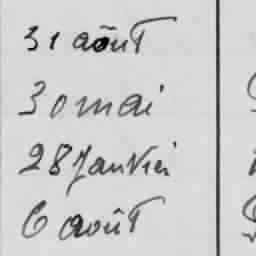 31 août
30 mai
28 Janvier
6 août